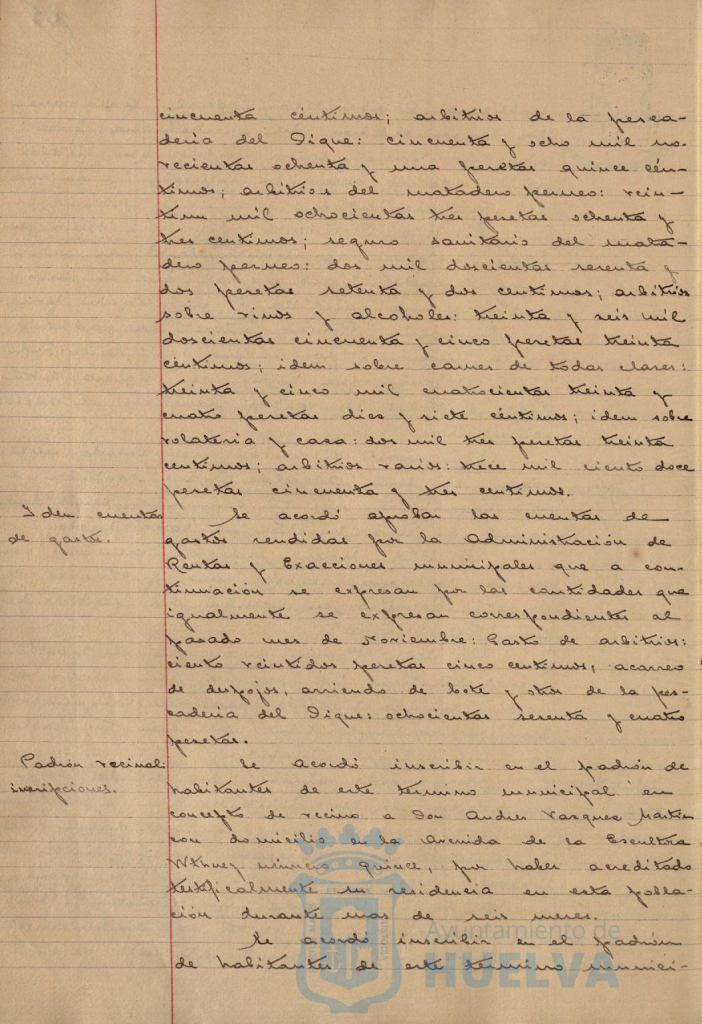 cincuenta céntimos; arbitrios de la pesca-
deria del Dique: cincuenta y ocho mil no-
vecientas ochenta y una pesetas quince cén-
timos; arbitrios del matadero permeo: vein-
tiun mil ochocientas tres pesetas ochenta y
tres centimos; seguro sanitario del mata-
dero permeo: dos mil doscientas sesenta y
dos pesetas setenta y dos centimos; arbitrios
sobre vinos y alcoholes: treinta y seis mil
doscientas cincuenta y cinco pesetas treinta
céntimos; idem sobre carnes de todas clases:
treinta y cinco mil cuatrocientas treinta y
cuatro pesetas diez y siete céntimos; idem sobre
volateria y caza: dos mil tres pesetas treinta
centimos; arbitrios varios: trece mil ciento doce
pesetas cincuenta y tres centimos.
Idem cuentas
de gastos.
Se acordó aprobar las cuentas de
gastos rendidas por la Administración de
Rentas y Exacciones municipales que a con-
tinuación se expresan por las cantidades que
igualmente se expresan correspondientes al
pasado mes de Noviembre: Gasto de arbitrios:
ciento veintidos pesetas cinco centimos; acarreo
de despojos, arriendo de bote y otros de la pes-
caderia del Dique: ochocientas sesenta y cuatro
pesetas.
Padrón vecinal:
inscripciones.
Se acordó inscribir en el padrón de
habitantes de este término municipal en
concepto de vecino a Don Andres Vasquez Martin
con domicilio en la Avenida de la Escultora
Whitney número quince, por haber acreditado
testificalmente su residencia en esta pobla-
ción durante mas de seis meses.
Se acordó inscribir en el padrón
de habitantes de este término munici-
Ayuntamiento de
HUELVA